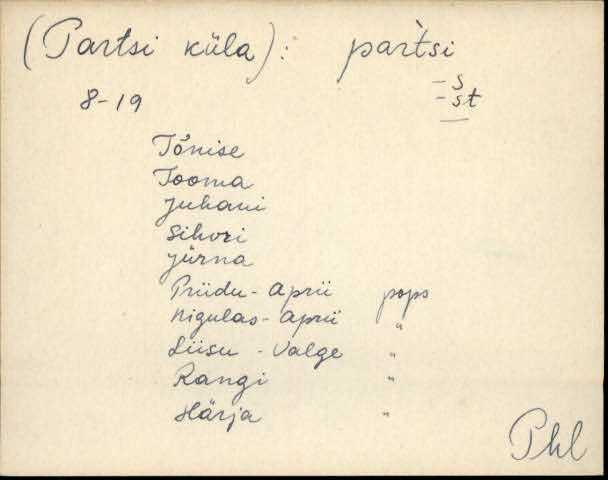 (Partsi küla): par̀tsi
8-19 -s
-st
Tõnise
Tooma
Juhani
Sihvri
Jürna
Priidu - Aprii pops
Nigulas - Aprii "
Liisu - Valge "
Rangi "
Härja "
Phl